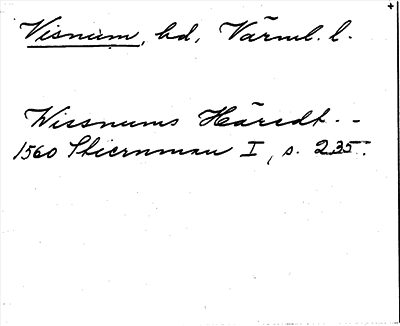 Visnum, hd, Värml. l.
Wissnums Häredt - -
1560 Stiernman I, s. 235.